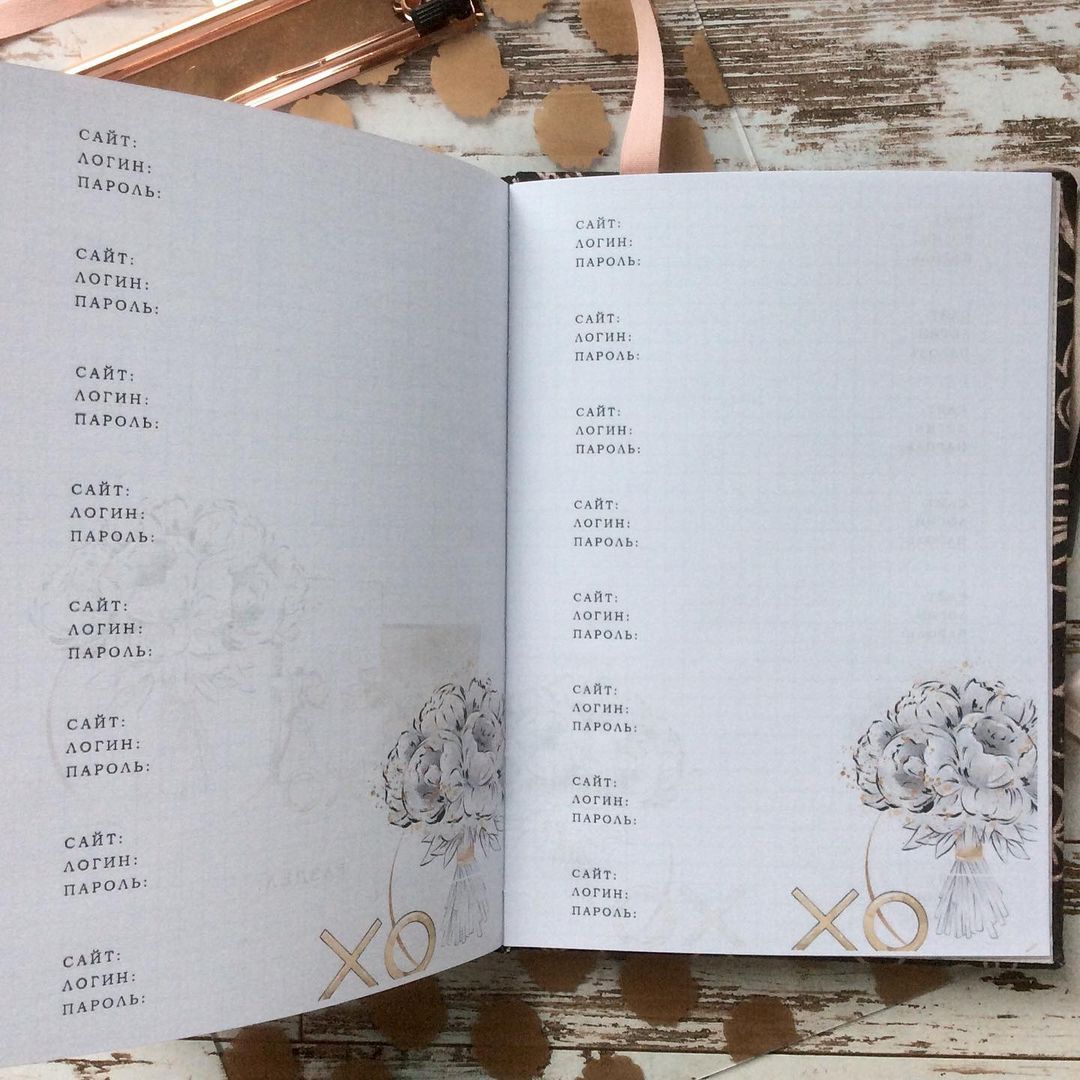 САЙТ:
ЛОГИН:
ПАРОЛЬ:
САЙТ:
ЛОГИН:
ПАРОЛЬ:
САЙТ:
ЛОГИН:
ПАРОЛЬ:
САЙТ:
ЛОГИН:
ПАРОЛЬ:
САЙТ:
ЛОГИН:
ПАРОЛЬ:
САЙТ:
ЛОГИН:
ПАРОЛЬ:
САЙТ:
ЛОГИН:
ПАРОЛЬ:
САЙТ:
ЛОГИН:
ПАРОЛЬ:
XO
САЙТ:
ЛОГИН:
ПАРОЛЬ:
САЙТ:
ЛОГИН:
ПАРОЛЬ:
САЙТ:
ЛОГИН:
ПАРОЛЬ:
САЙТ:
ЛОГИН:
ПАРОЛЬ:
САЙТ:
ЛОГИН:
ПАРОЛЬ:
САЙТ:
ЛОГИН:
ПАРОЛЬ:
САЙТ:
ЛОГИН:
ПАРОЛЬ:
САЙТ:
ЛОГИН:
ПАРОЛЬ:
XO